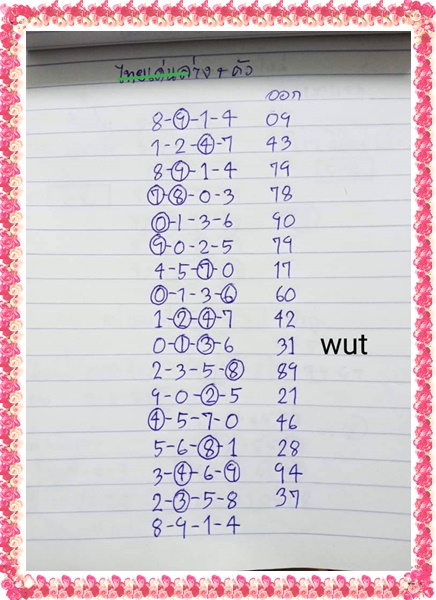 ไทยเด่นล่าง + ตัว
ออก
8-9-1-4 09
1-2-4-7 43
8-9-1-4 79
7-8-0-3 78
0-1-3-6 90
9-0-2-5 79
4-5-7-0 17
0-1-3-6 60
1-2-4-7 42
0-1-3-6 31 wut
2-3-5-8 89
9-0-2-5 21
4-5-7-0 46
5-6-8-1 28
3-4-6-9 94
2-3-5-8 37
8-9-1-4